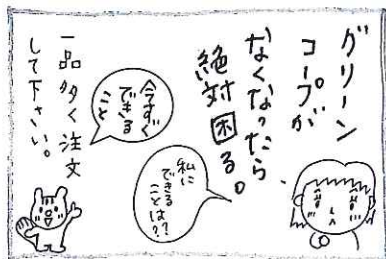 グリーン
コープが
なくなったら
絶対困る。
私に
できる
ことは??
今すぐ
できる
こと
一品多く注文
して下さい。